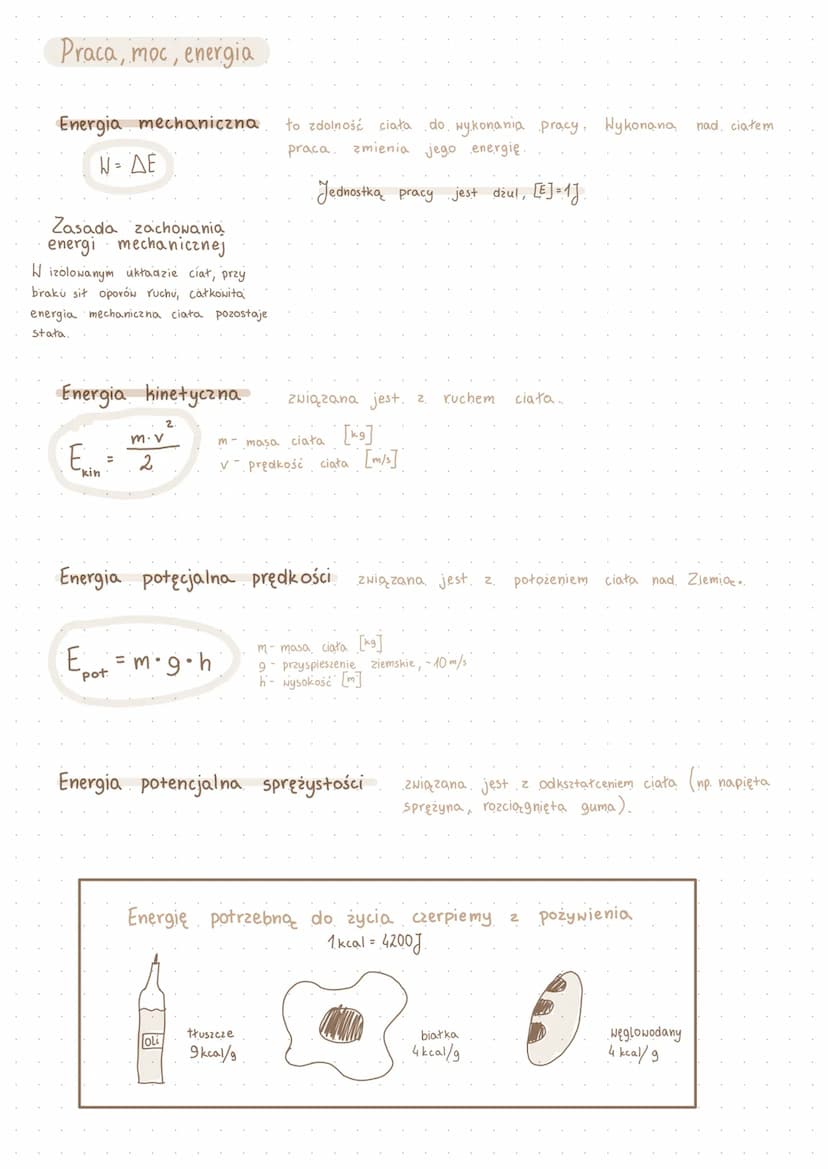 Praca, moc, energia
Energia mechaniczna to zdolność ciała do wykonania pracy. Wykonana nad ciałem
praca zmienia jego energię.
W = ΔE
Jednostką pracy jest dżul, [E]=1J
Zasada zachowania
energi mechanicznej
W izolowanym układzie ciał, przy
braku sił oporów ruchu, całkowita
energia mechaniczna ciała pozostaje
stała.
Energia kinetyczna związana jest z ruchem ciała.
E kin = m·v² / 2
m - masa ciała [kg]
v - prędkość ciała [m/s]
Energia potęcjalna prędkości związana jest z położeniem ciała nad Ziemią.
E pot = m·g·h
m - masa ciała [kg]
g - przyspieszenie ziemskie, ~10 m/s
h - wysokość [m]
Energia potencjalna sprężystości związana jest z odkształceniem ciała (np. napięta
sprężyna, rozciągnięta guma).
Energię potrzebną do życia czerpiemy z pożywienia
1kcal = 4200J
OLI
tłuszcze
9kcal/g
białka
4kcal/g
węglowodany
4 kcal/g